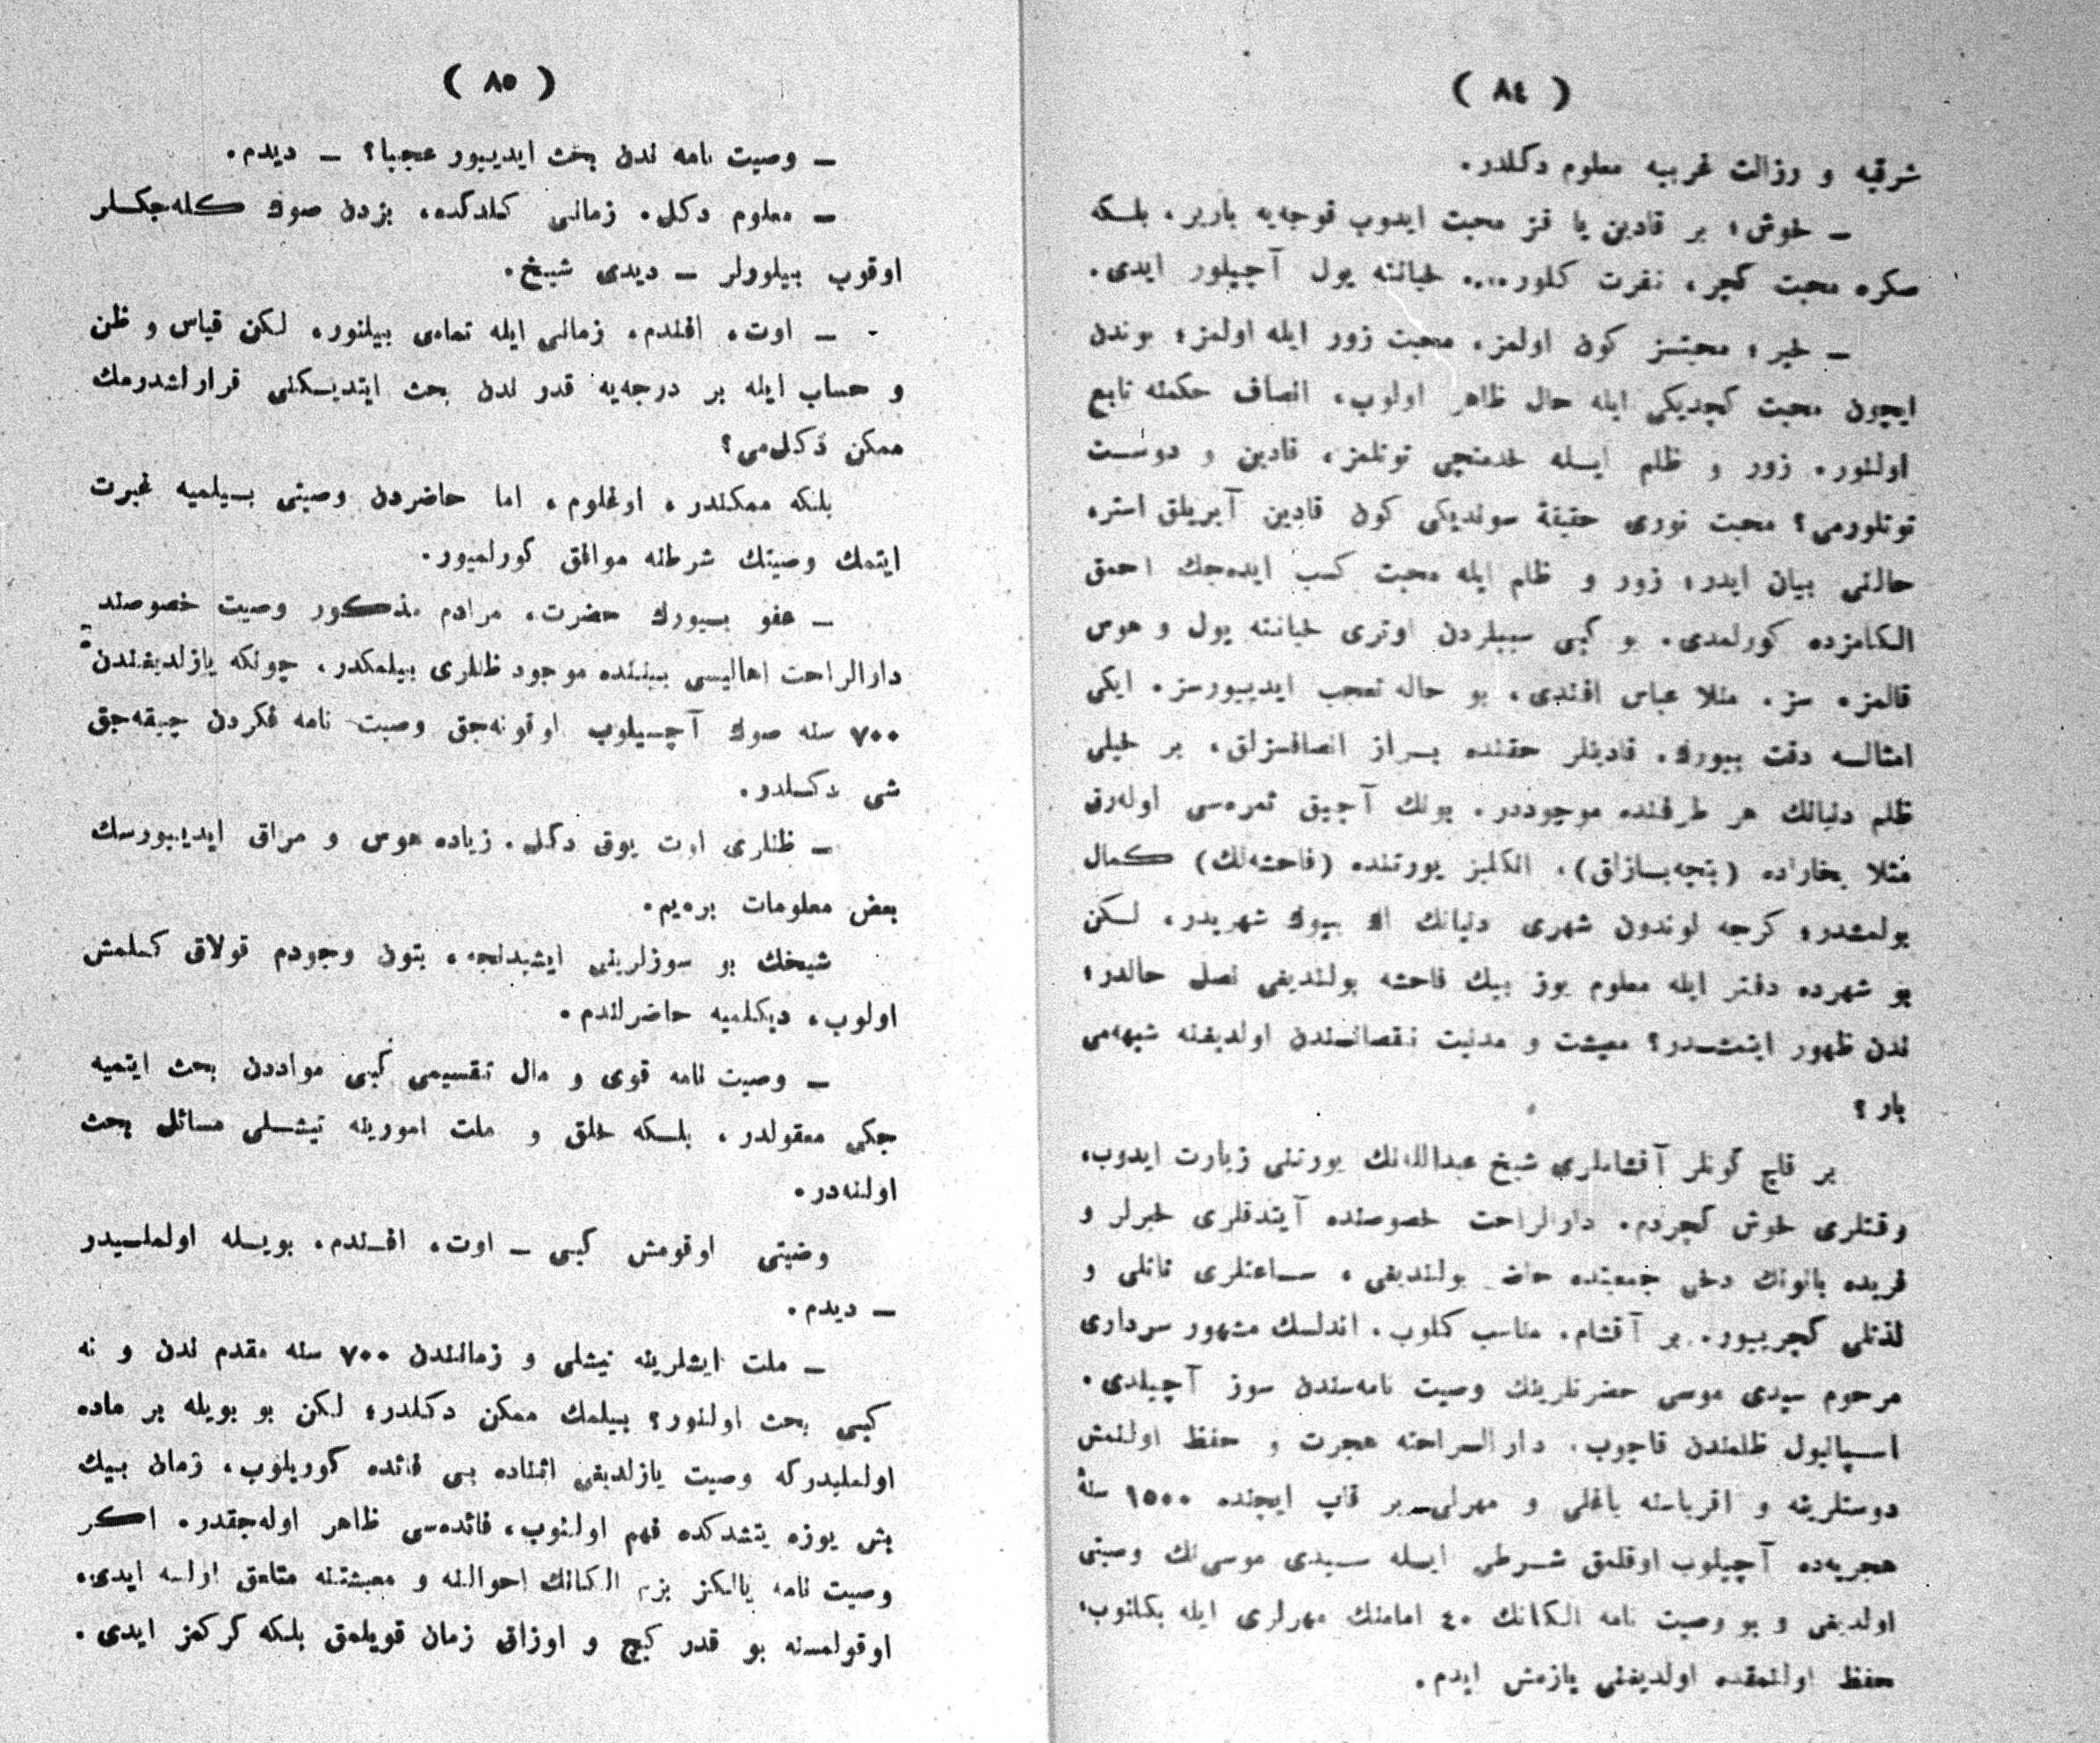 ( ٨٤ )
شرقیه و رزالت غربیه معلوم دکلدر.
ـ خوش؛ بر قادین یا قز محبت ایدوب قوجه‌یه باریر، بلـکه
صکره محبت کچر، نفرت کلور.... خیانته یول آچیلور ایدی.
ـ خیر؛ محبتسز کون اولمز، محبت زور ایله اولمز؛ بوندن
ایچون محبت کچدیکی ایله حال ظاهر اولوب، انصاف حکمنه تابع
اولنور. زور و ظلم ایـله خدمتچی توتلمز، قادین و دوسـت
توتلورمی؟ محبت نوری حقیقة سوندیکی کون قادین آیریلق استره
حالنی بیان ایدر؛ زور و ظلم ایله محبت کسب ایده‌جك احمق
الکامزده کورلمدی. بو کبی سببلردن اوتری خیانته یول و هوس
قالمز. سز. منلا عباس افندی، بو حاله تعجب ایدییورسز. ایکی
امثالـه دقت بیورك. قادینلر حقنده بـراز انصافسزلق، بر خیلی
ظلم دنیانك هر طرفنده موجوددر. بونك آجیق ثمره‌سی اوله‌رق
مثلا بخاراده (بتچه‌بـازلق)، انکلیز یورتنده (فاحشه‌لك) کمال
بولمشدر؛ کرچه لوندون شهری دنیانك اك بیوك شهریدر، لـکن
بو شهرده دفتر ایله معلوم یوز بیك فاحشه بولندیغی نصل حالدر؛
ندن ظهور ایتمشـدر؟ معیشت و مدنیت نقصانـندن اولدیغنه شبهه‌می
بار؟
بر قاچ کونلر آقشاملری شیخ عبدالله‌نك یورتنی زیارت ایدوب،
وقتلری خوش کچردم. دارالراحت خصوصنده آیتدقلری خبرلر و
فریده بانونك دخی جمعیتده حاضر بولندیغی، سـاعتلری تاتلی و
لذتلی کچریبور. بر آقشام. مناسب کلوب. اندلسك مشهور سرداری
مرحوم سیدی موسی حضرتلرینك وصیت نامه‌سندن سوز آچیلدی.
اسـپانیول ظلمندن قاچوب. دار الـراحته هجرت و حفظ اولنمش
دوستلرینه و اقرباسنه باغلی و مهرلی بر قاپ ایچنده ١٥٠٠ سنۀ
هجریه‌ده آچیلوب اوقلمق شـرطی ایـله سـیدی موسی‌نك وصیتی
اولدیغی و بو وصیت نامه الکانك ٤٠ امامنك مهرلری ایله بکلنوب،
حفظ اولنمقده اولدیغنی یازمش ایدم.
( ٨٥ )
ـ وصیت نامه ندن بحث ایدییور عجبا؟ ـ دیدم.
ـ معلوم دکل. زمانی کلدکده، بزدن صوك کله‌جکـلر
اوقوب بیلوولر ـ دیدی شیخ.
ـ اوت، افندم، زمانی ایله تمامی بیلنور، لکن قیاس و ظن
و حساب ایله بر درجه‌یه قدر ندن بحث ایتدیـکنی قرارلشدرمك
ممکن دکل‌می؟
بلکه ممکندر، اوغلوم، اما حاضردن وصیتی بـیلمیه غیرت
ایتمك وصیتك شرطنه موافق کورلمیور.
ـ عفو بـیورك حضرت، مرادم مذکور وصیت خصوصند
دارالراحت اهالیسی بیننده موجود ظنلری بیلمکدر، چونکه یازلدیغندن
٧٠٠ سنه صوك آچـیلوب اوقونه‌جق وصیت نامه فکردن چیقه‌جق
شی دکـلدر.
ـ ظنلری اوت یوق دکل. زیاده هوس و مراق ایدییورسك
بعض معلومات بره‌یم.
شیخك بو سوزلرینی ایشیدنجه، بتون وجودم قولاق کسلمش
اولوب، دیکلمیه حاضرلندم.
ـ وصیت نامه قوی و مال تقسیمی کبی مواددن بحث ایتمیه
جکی معقولدر، بلـکه خلق و ملت امورینه تیشـلی مسائل بحث
اولنه‌در.
وضیتی اوقومش کبی ـ اوت، افـندم، بویـله اولملـیدر
ـ دیدم.
ـ ملت ایشلرینه تیشلی و زماندن ٧٠٠ سنه مقدم ندن و نه
کبی بحث اولنور؟ بیلمك ممکن دکلدر؛ لکن بو بویله بر ماده
اولملیدرکه وصیت یازلدیغی اثناده بی فائده کوریلوب، زمان بیك
بش یوزه یتشدکده فهم اولنوب، فائده‌سی ظاهر اوله‌جقدر. اکر
وصیت نامه یالـکز بزم الکانك احوالنه و معیشتنه متعلق اولـه ایدی،
اوقولمسنه بو قدر کیچ و اوزاق زمان قویلمق بلکه کرکمز ایدی.